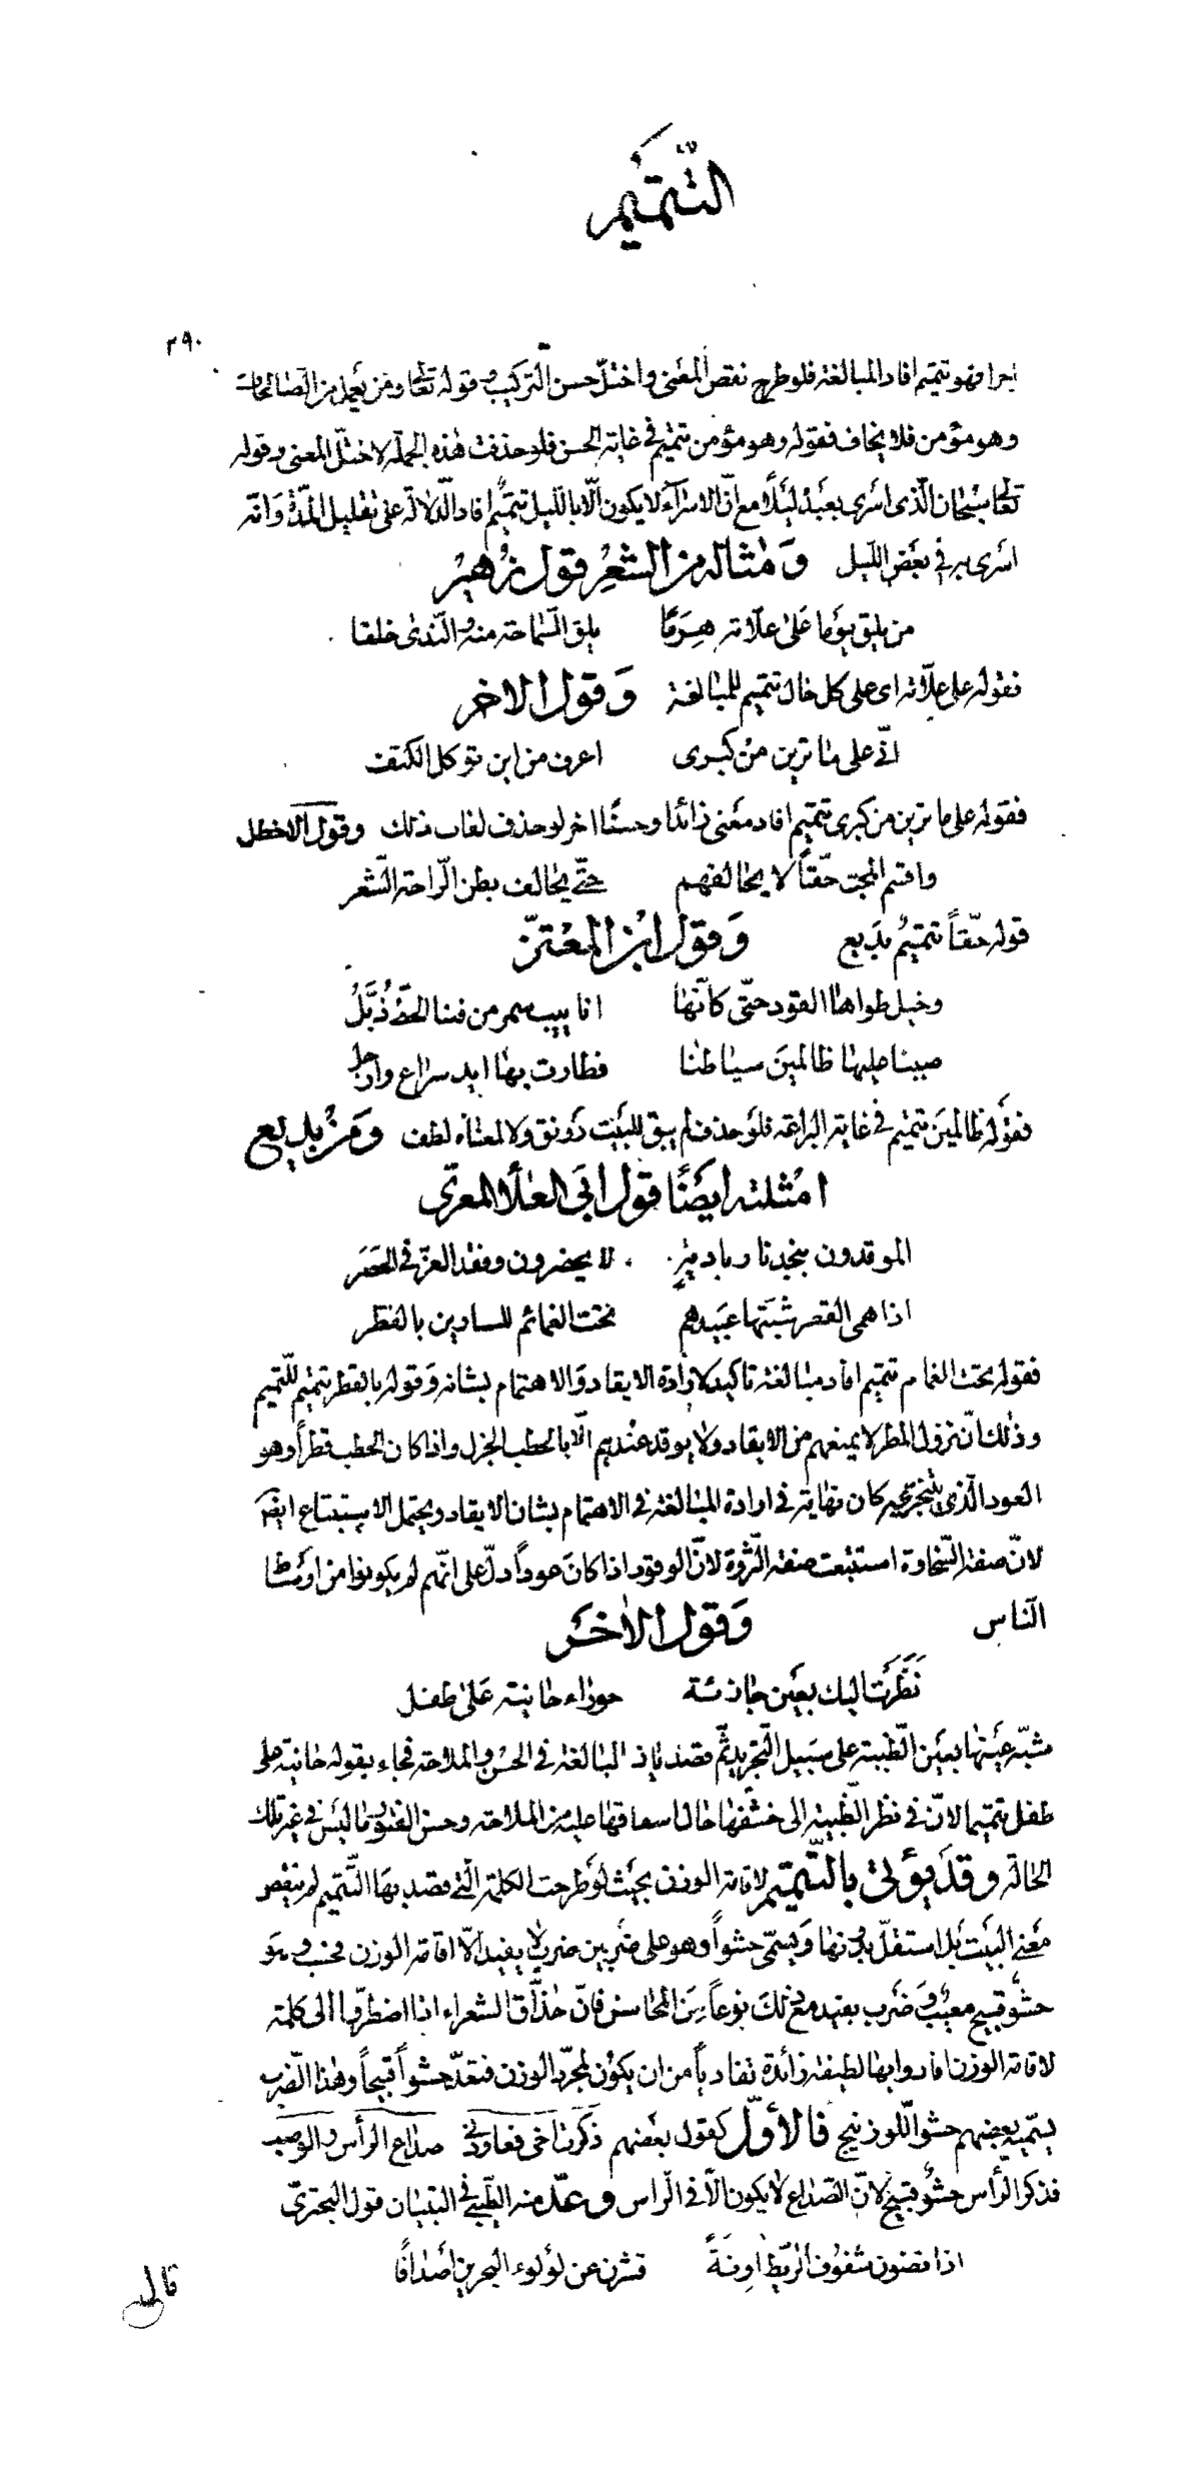 التتميم
٢٩٠
اجرا فهو تتميم افاد المبالغة فلو طرح نقص المعنى واختلّ حسن التركيب وقوله تعالى ومن يعمل من الصالحات
وهو مؤمن فلا يخاف فقوله وهو مؤمن تتميم في غاية الحسن فلو حذفت هذه الجملة لاختلّ المعنى وقوله
تعالى سبحان الّذى اسرى بعبده ليلًا مع انّ الاسرآء لا يكون الّا بالليل تتميم افاد الدلالة على تقليل المدّة وانّه
اسرى به في بعض الليل ومثاله من الشعر قول زهير
من يلق يوما على علّاته هرمًا يلق السماحة منه والندى خلقا
فقوله على علّاته اى على كل حال تتميم للمبالغة وقول الاخر
انّى على ما ترين من كبرى اعرف من اين تؤكل الكتف
فقوله على ما ترين من كبرى تتميم افاد معنى زائدا وحسنًا اخر لو حذف لفات ذلك وقول الاخطل
واقسم المجد حقّاً لا يحالفهم حتّى يحالف بطن الرّاحة الشّعر
قوله حقّاً تتميم بديع وقول ابن المعتزّ
وخيل طواها القود حتّى كانّها انابيب سمر من قنا الخطّ ذبّل
صببنا عليها ظالمين سياطنا فطارت بها ايد سراع وارجل
فقوله ظالمين تتميم في غاية البراعة فلو حذف لم يبق للبيت رونق ولا لمعناه لطف ومن بديع
امثلته ايضًا قول ابى العلا المعرّى
الموقدون بنجد نار بادية لا يحضرون وفقد العزّ في الحضر
اذا همى القطر شبّتها عبيدهم تحت الغمائم للسارين بالقطر
فقوله تحت الغمام تتميم افاد مبالغة تاكيد لارادة الايقاد والاهتمام بشانه وقوله بالقطر تتميم للتّميم
وذلك انّ نزول المطر لا يمنعهم من الايقاد ولا يوقد عندهم الّا بالحطب الجزل واذا كان الحطب قطراً وهو
العود الّذى يتبخّر به كان نهاية في ارادة المبالغة في الاهتمام بشان الايقاد ويحتمل الاستتباع ايضا
لانّ صفة السّخاوة استتبعت صفة الثّروة لانّ الوقود اذا كان عوداً دلّ على انّهم لم يكونوا من اوساط
النّاس وقول الاخر
نظرت اليك بعين جاذئة حوراء حانية على طفل
شبّه عينها بعين الظبية على سبيل التّجريد ثمّ قصد المبالغة في الحسن والملاحة فجاء بقوله حانية على
طفل تتميما لانّ في نظر الظّبية الى خشفها حال اشفاقها عليه من الملاحة وحسن الفتور ما ليس في غير تلك
الحالة وقد يؤتى بالتّتميم لاقامة الوزن بحيث لو طرحت الكلمة الّتى قصد بها التّتميم لم ينقص
معنى البيت بل استقلّ بدونها ويسمّى حشواً وهو على ضربين ضرب لا يفيد الّا اقامة الوزن فحسب وهو
حشو قبيح معيب وضرب يفيد مع ذلك نوعاً من المحاسن فانّ حذّاق الشعراء اذا اضطرّوا الى كلمة
لاقامة الوزن افادوا بها لطيفة زائدة تفادياً من ان يكون لمجرّد الوزن فتعدّ حشواً قبيحاً وهذا الضّرب
يسمّيه بعضهم حشو اللّوزنيج فالاوّل كقول بعضهم ذكرت اخى فعاودنى صداع الرأس والوصب
فذكر الرأس حشو قبيح لانّ الصّداع لا يكون الّا فى الرأس وعدّ منه الطّيبى في التبيان قول البحترىّ
اذا نضون شفوف الرّيط اونةً قشرن عن لؤلوء البحرين اصدافًا
قال